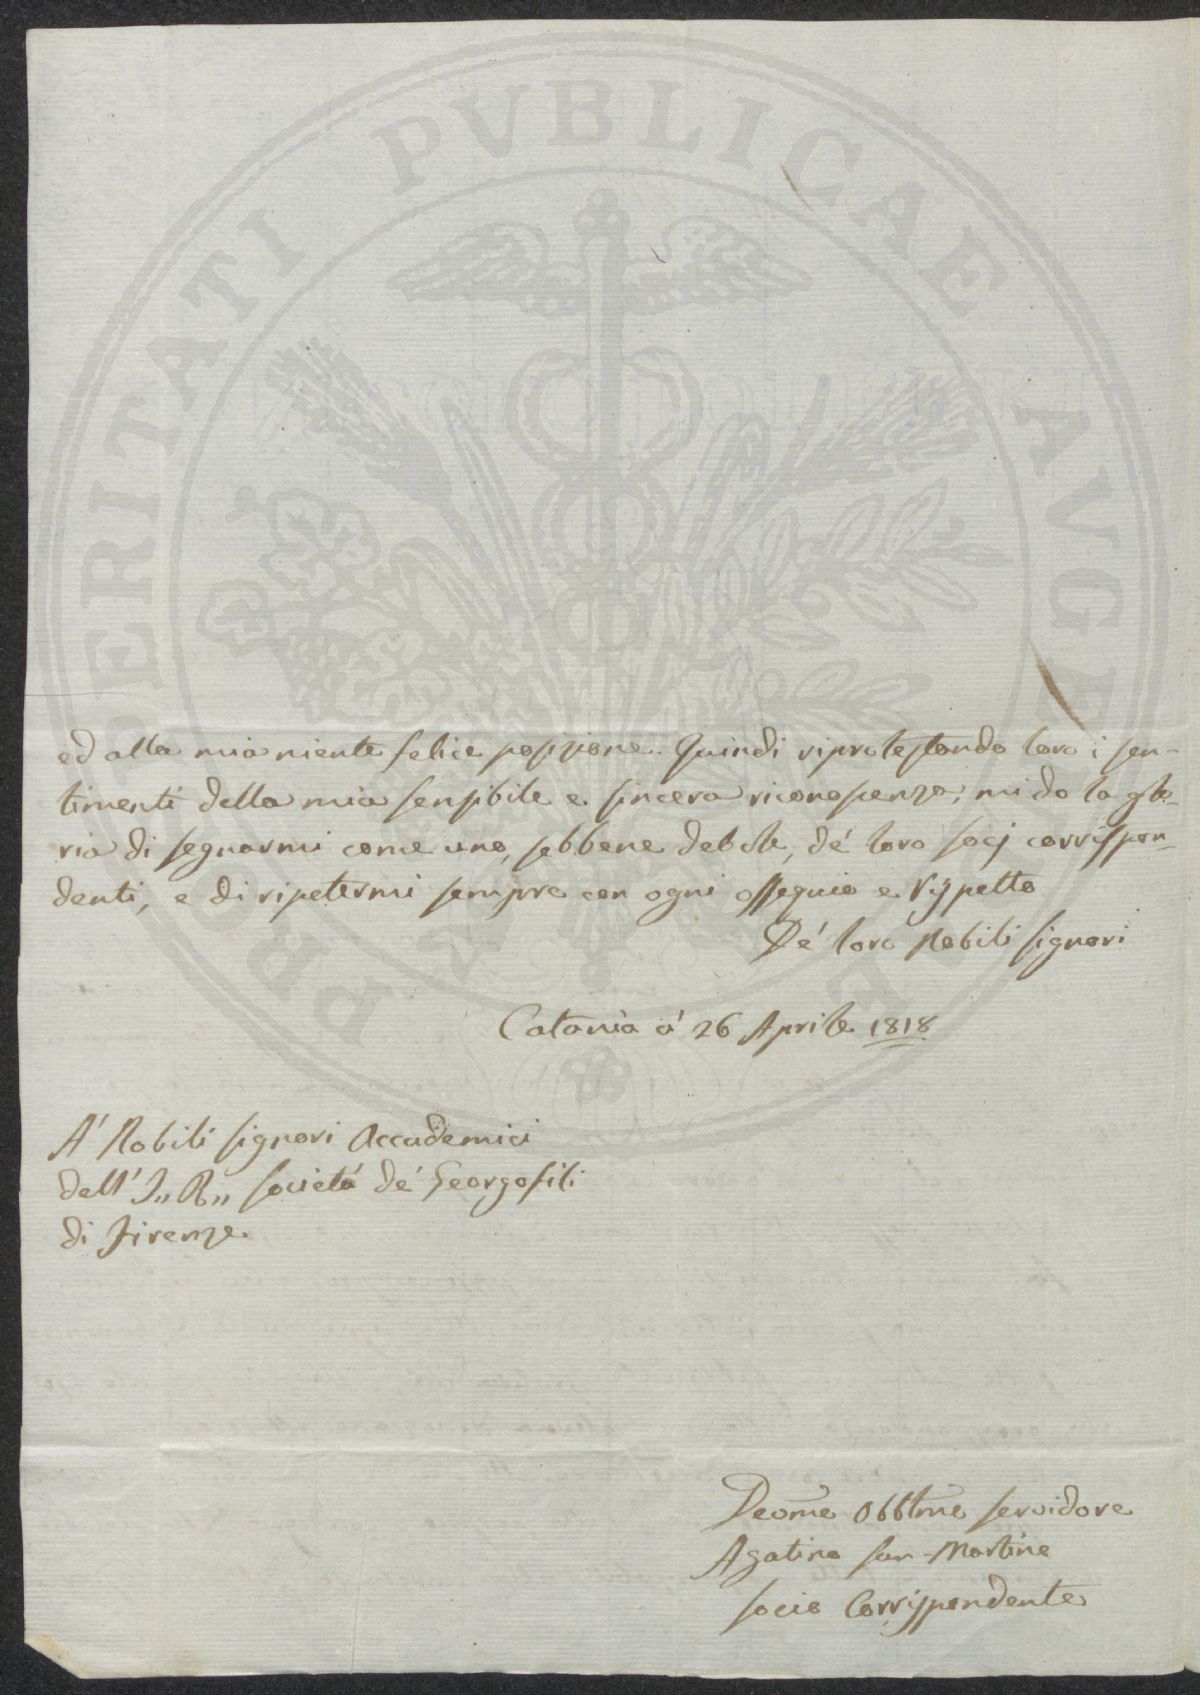 PROSPERITATI PVBLICAE AVGENDAE
ed alla mia niente felice posizione. Quindi riprotestando loro i sen-
timenti della mia sensibile e sincera riconoscenza, mi do la glo-
ria di segnarmi come uno, sebbene debole, dé loro socj corrispon-
denti, e di ripetermi sempre con ogni ossequio e rispetto
Dé loro Nobili signori
Catania á 26 Aprile 1818
A' Nobili signori Accademici
dell' I,, R,, società dé Georgofili
di Firenze
Deōme Obbl̄me servidore
Agatino san-Martino
socio Corrispondente